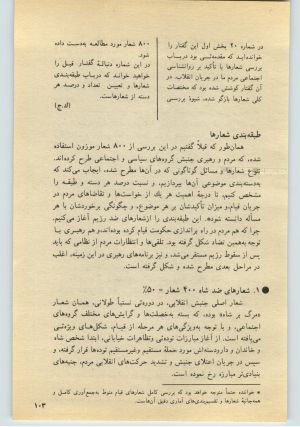 در شماره ۲۰ بخش اول این گفتار را
خوانده‌اید که مقدمه‌ئی بود درباب
بررسی شعارها با تأکید بر روانشناسی
اجتماعی مردم ما در جریان انقلاب. در
آن گفتار کوشش شده بود که مختصات
کلی شعارها بازگو شده، شیوهٔ بررسی
۸۰۰ شعار مورد مطالعه به‌دست داده
شود.
در این شماره دنبالهٔ گفتار قبل را
خواهید خواند که درباب طبقه‌بندی
شعارها و تعیین تعداد و درصد هر
دسته از شعارهاست.
(ك.ج)
طبقه‌بندی شعارها
همان‌طور که قبلاً گفتیم در این بررسی از ۸۰۰ شعار موزون استفاده
شده، که مردم و رهبری جنبش گروه‌های سیاسی و اجتماعی طرح کرده‌اند.
تنوع شعارها و مسائل گوناگونی که در آن‌ها مطرح شده، ایجاب می‌کند که
به‌دسته‌بندی موضوعی آن‌ها بپردازیم، و نسبت درصد هر دسته و طبقه را
مشخص کنیم، تا درجهٔ اهمیت هر یك از خواست‌ها و تقاضاهای مردم در
جریان قیام، و میزان تأکیدشان بر هر موضوع، و چگونگی برخوردشان با هر
مسأله دانسته شود. این طبقه‌بندی را ازشعارهای ضد رژیم آغاز می‌کنیم.
چرا که هم مردم در راه براندازی حکومت قیام کرده بوده‌اند، و هم رهبری با
توجه به‌همین تضاد شکل گرفته بود. تلقی‌ها و انتظارات مردم از نظامی که باید
پس از سقوط رژیم مستقر می‌شد، و نیز برنامه‌های رهبری در این زمینه، اغلب
در مراحل بعدی مطرح شده و شکل گرفته است.
● ۱. شعارهای ضد شاه ۴۰۰ شعار = ۵۰٪
شعار اصلی جنبش انقلابی، در دوره‌ئی نسبتاً طولانی، همان شعار
«مرگ بر شاه» بوده، که بسته به‌خصلت‌ها و گرایش‌های مختلف گروه‌های
اجتماعی، و با توجه به‌ویژگی‌های هر مرحله از قیام، شکل‌های ویژه‌ئی
می‌یافته است. از آغاز مبارزات توده‌ئی وتظاهرات خیابانی، ابتدا شخص شاه
و خاندان و داردوسته‌اش مورد حملهٔ مستقیم وغیرمستقیم توده‌ها قرار گرفته، و
سپس در جریان اعتلای جنبش و تشدید حرکت‌های انقلابی مردم، جنبه‌های
بنیادی‌تر مبارزه رخ نموده است.
* خواننده حتماً متوجه خواهد بود که بررسی کامل شعارهای قیام منوط به‌جمع‌آوری کامل و
همه‌جانبهٔ شعارها و تقسیم‌بندی‌های آماری دقیق آن‌هاست.
۱۰۳